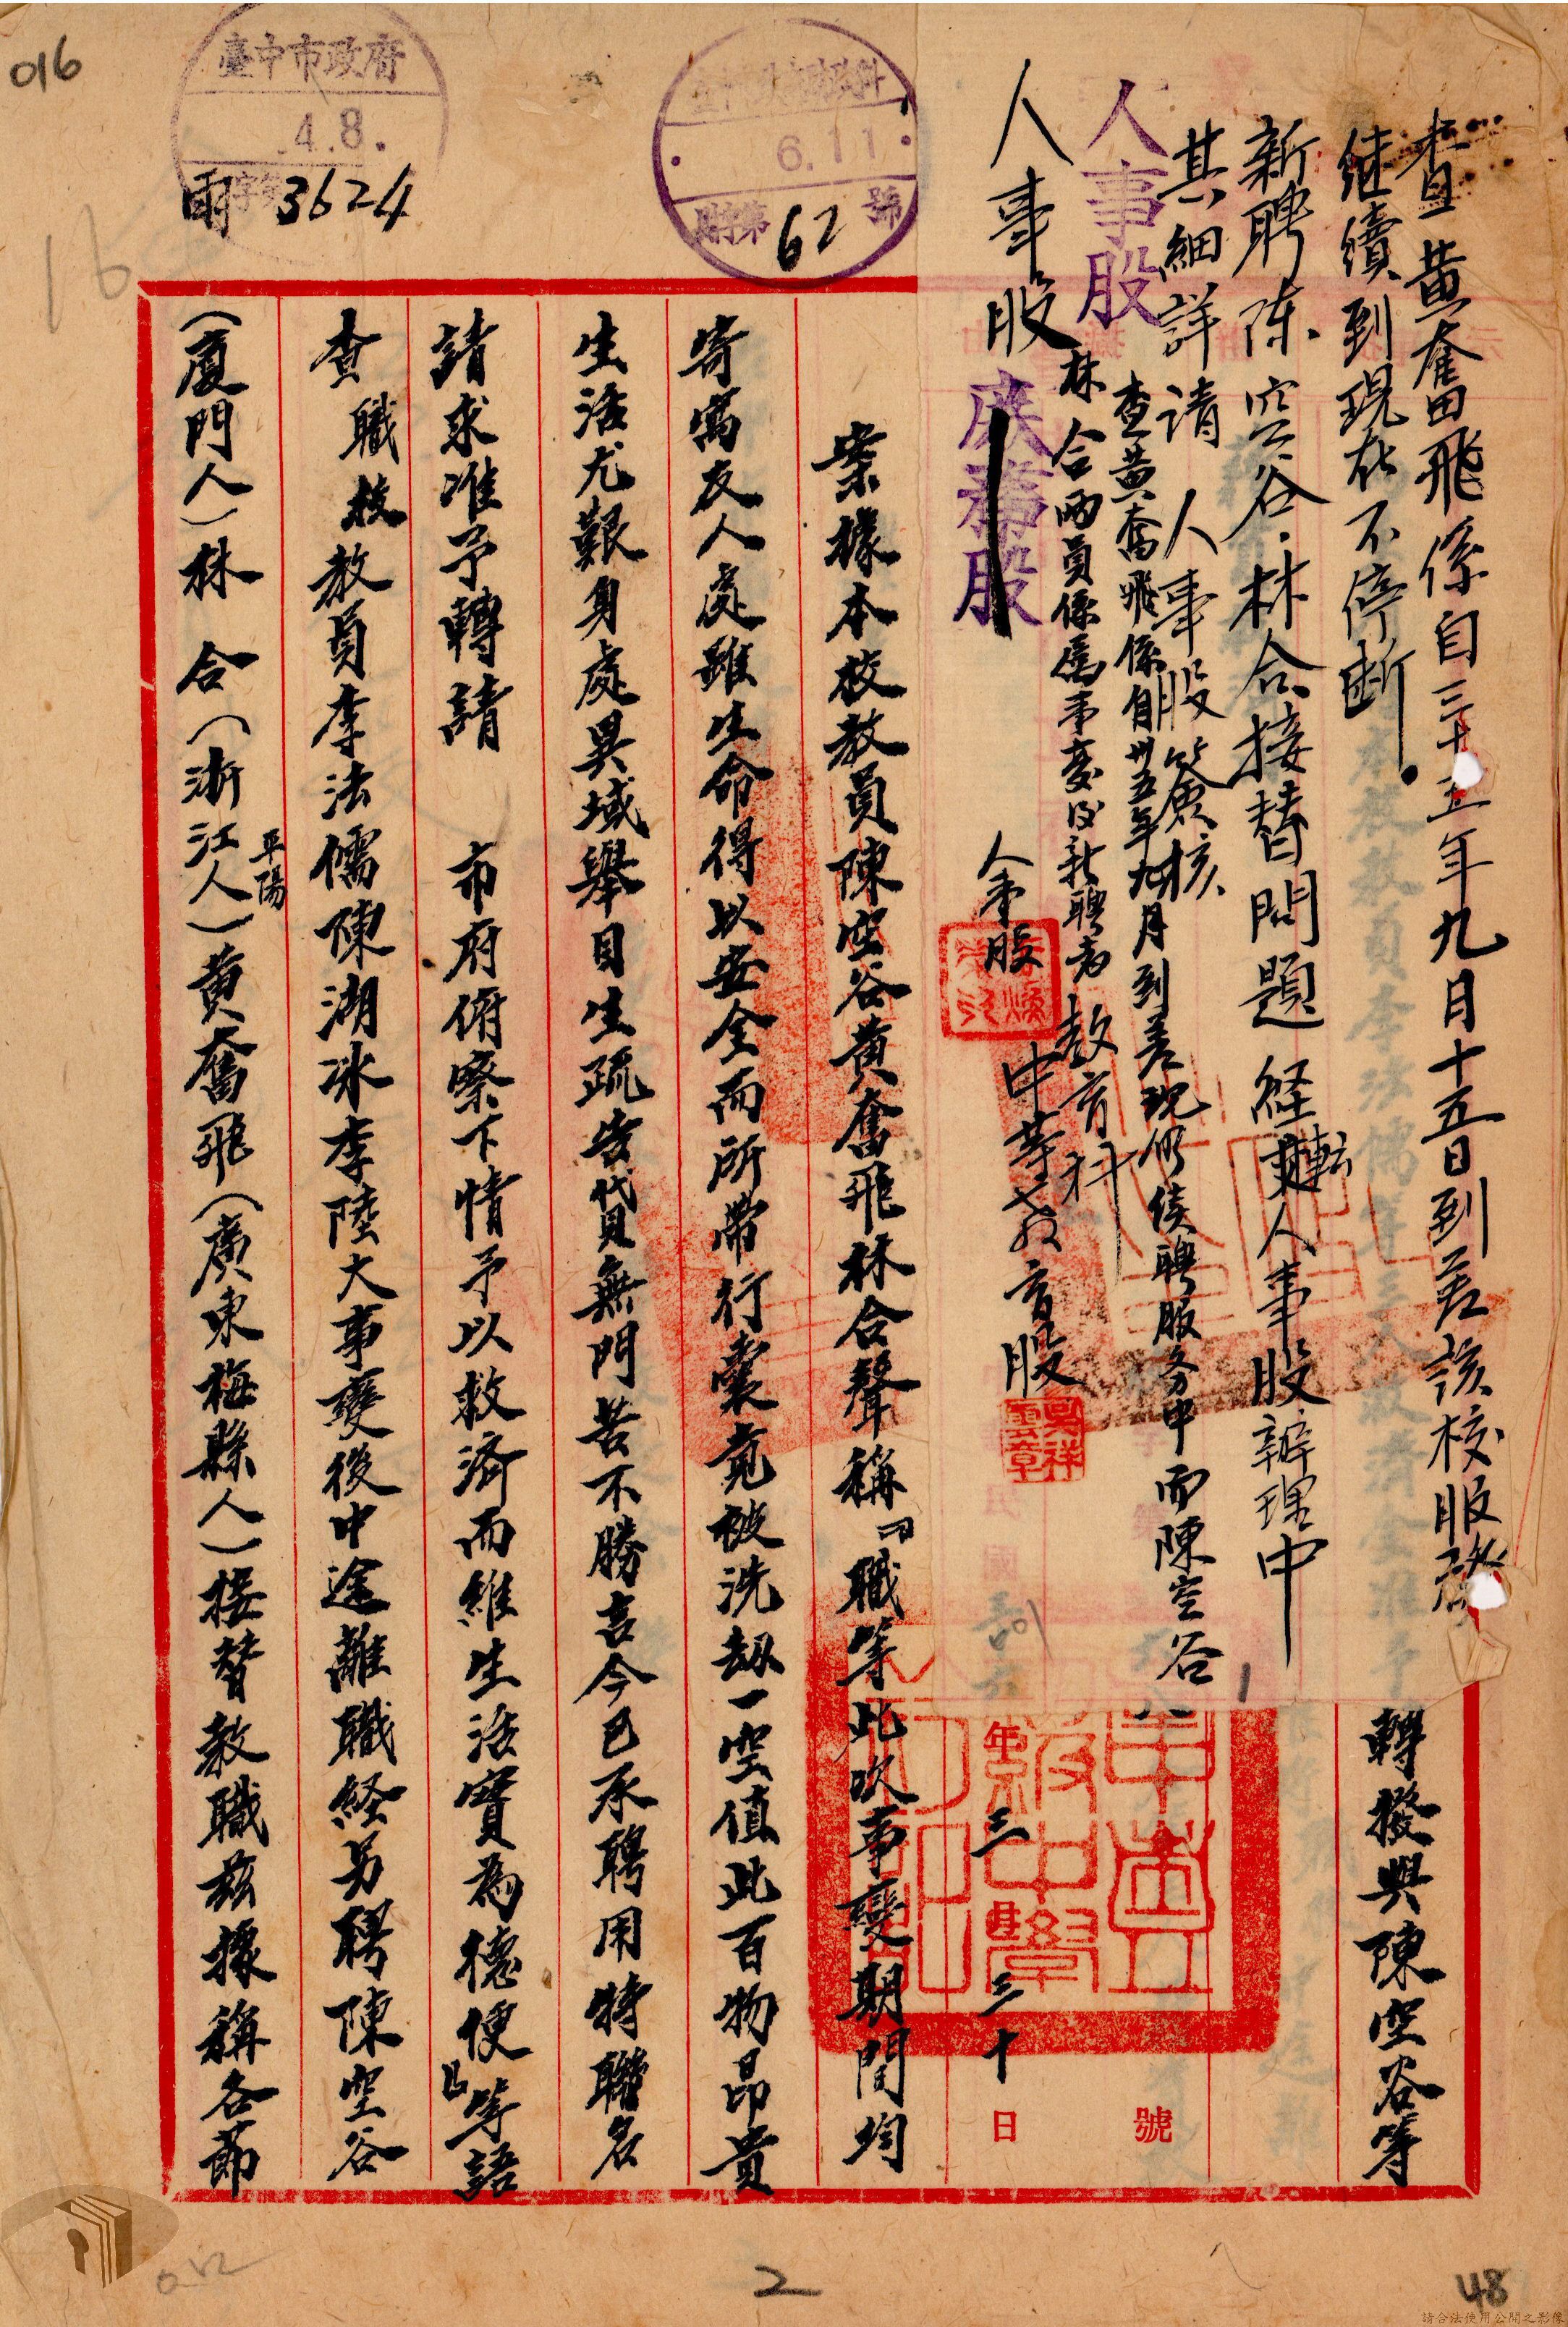 016
臺中市政府
4.8.
字第
3624
6.11.
財字第
62
號
查黃奮飛係自三十五年九月十五日到差該校服務
继續到現在不停断。
新聘陈空谷.林合接替問題経転人事股辦理中
其細詳请 人事股簽核
人事股
查黃奮飛係自卅五年九月到差現仍續聘服务中而陳空谷
林合兩員係屬事变後新聘者 教育科
人事股
庶務股
人事股
中等教育股
吳祥雲章
轉撥與陳空谷等
號
年三月三十日
案據本校教員陳空谷黃奮飛林合聲稱「職等此次事變期間均
寄寓友人處雖生命得以安全而所帶行囊竟被洗劫一空值此百物昂貴
生活尤艱身處異域舉目生疏告貸無門苦不勝言今已承聘用特聯名
請求准予轉請 市府俯察下情予以救濟而維生活實為德便」等語
查職校教員李法儒陳湖冰李陸大事變後中途離職経另聘陳空谷
(廈門人)林 合(浙江平陽人)黃奮飛(廣東梅縣人)接替教職茲據稱各節
2
48
請合法使用公開之影像